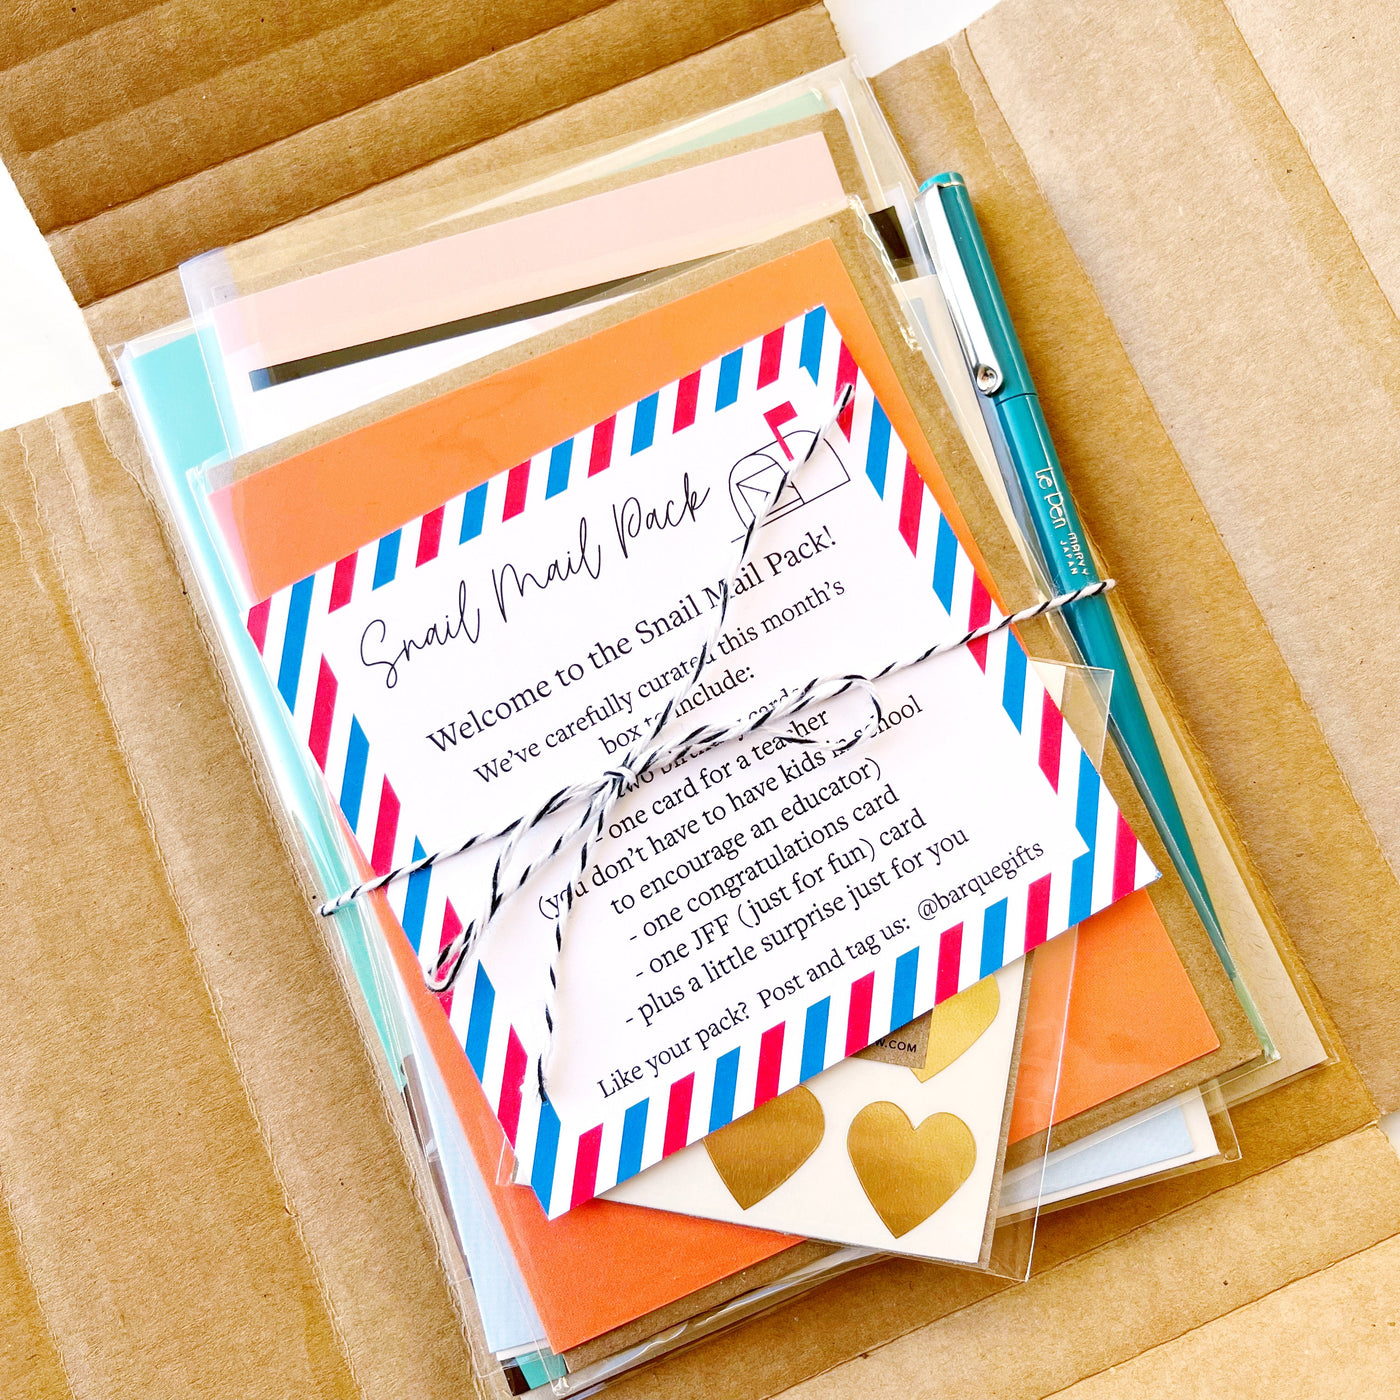 Snail Mail Pack
Welcome to the Snail Mail Pack!
We've carefully curated this month's
box to include:
two birthday cards
- one card for a teacher
(you don't have to have kids in school
to encourage an educator)
- one congratulations card
- one JFF (just for fun) card
- plus a little surprise just for you
Like your pack? Post and tag us: @barquegifts
Le Pen
MARVY
JAPAN
.COM